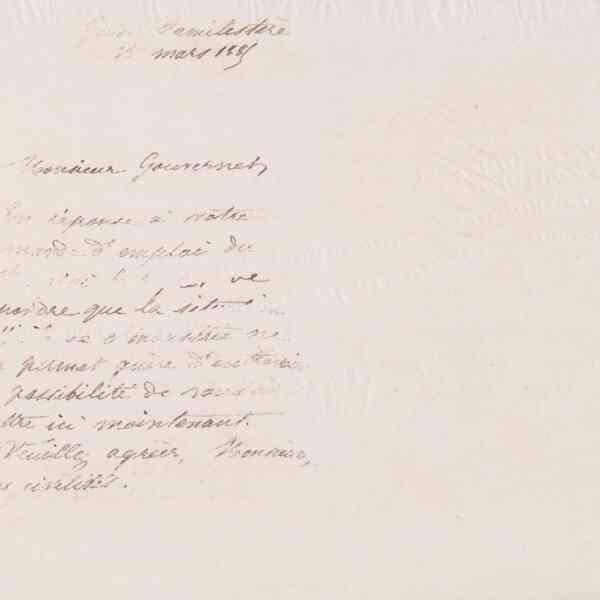 Familistère
mars 188
Monsieur Gouvernet,
En réponse à votre
mande d'emploi du
ve
pondre que la situ
industrie ne
permet guère d'entrevoir
possibilité de vous
ttre ici maintenant.
Veuillez agréer, Monsieur,
civilités.